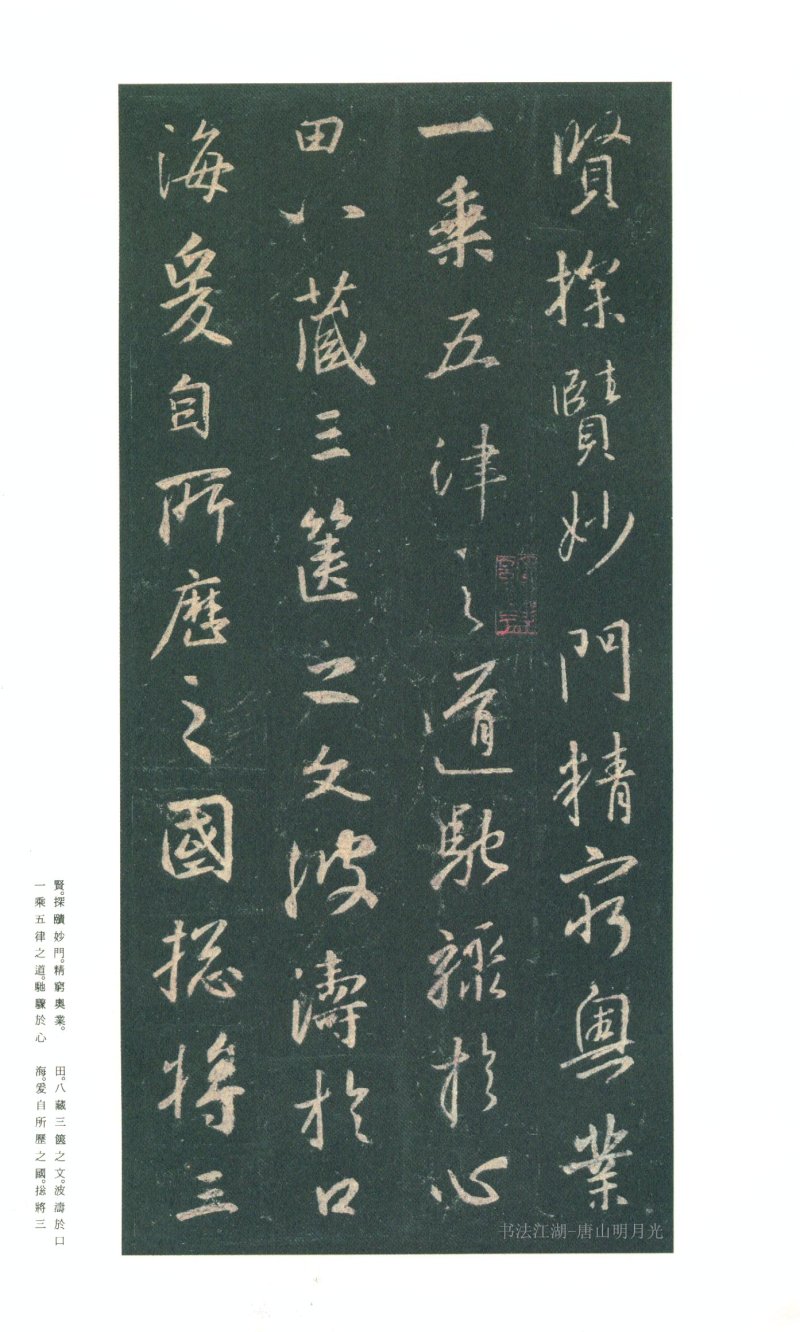 賢探賾妙門精窮奧業
一乘五律之道馳驟於心
田八藏三篋之文波濤於口
海爰自所歷之國揔將三
賢。探賾妙門。精窮奧業。
一乘五律之道。馳驟於心
田。八藏三篋之文。波濤於口
海。爰自所歷之國。揔將三
书法江湖-唐山明月光